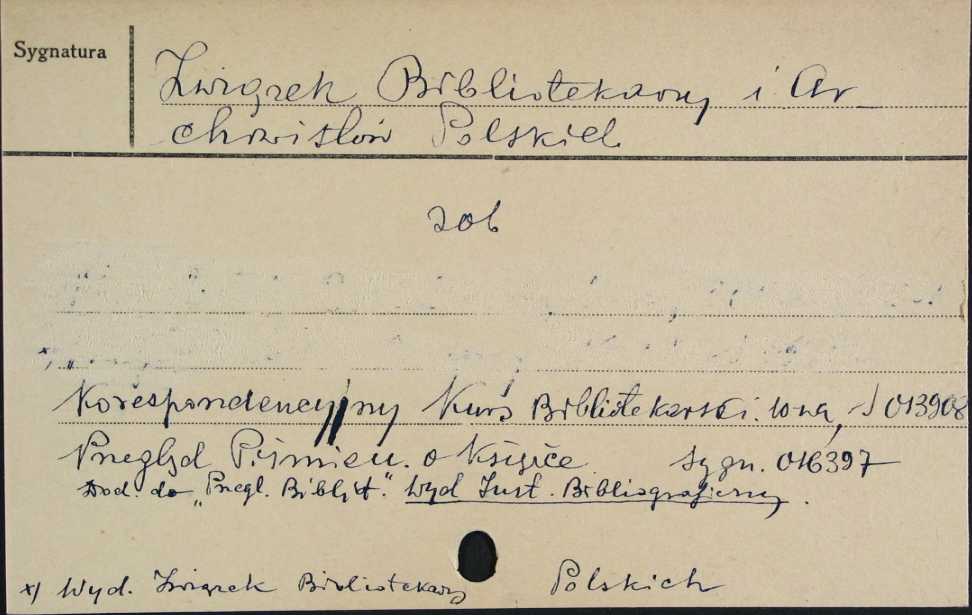 Sygnatura
Związek Bibliotekarzy i Ar-
chiwistów Polskich
zob
Korespondencyjny Kurs Bibliotekarski. 013908
Przegląd Piśmien. o Książce. Sygn. 016397
Dod. do "Przegl. Bibljot." Wyd Inst. Bibliograficzny.
x) Wyd. Związek Bibliotekarzy Polskich